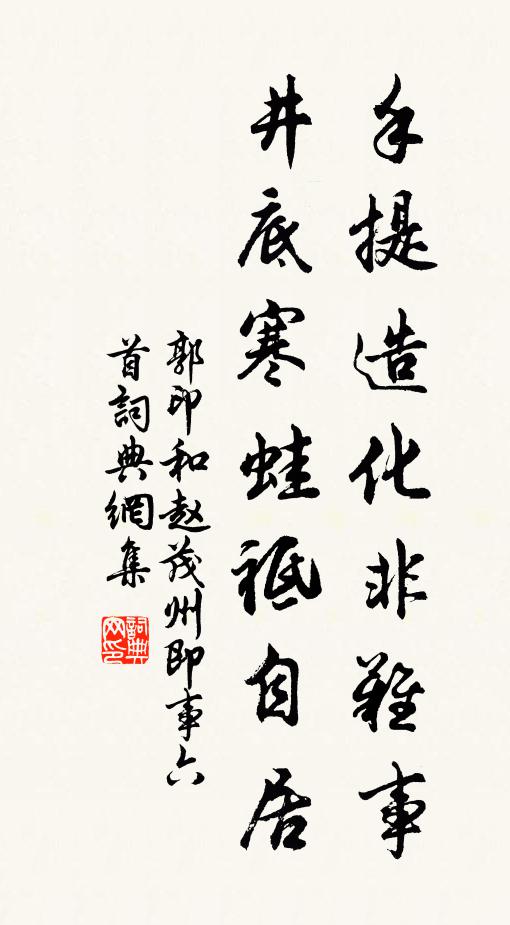 手提造化非難事
井底寒蛙祗自居
郭印和赵茂州即事六
首詞典網集
詞典网印